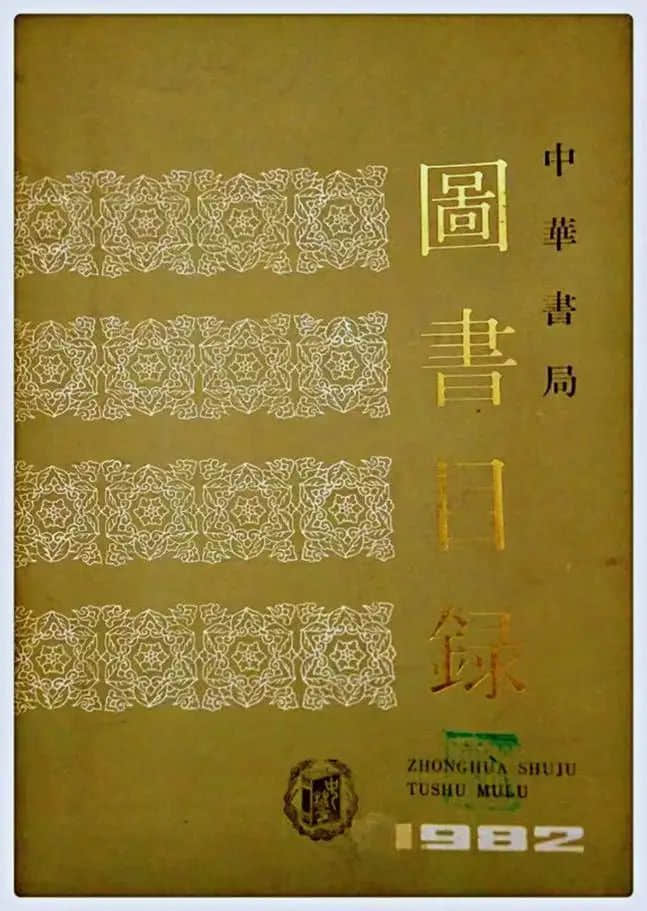 中華書局
圖書目録
ZHONGHUA SHUJU
TUSHU MULU
1982